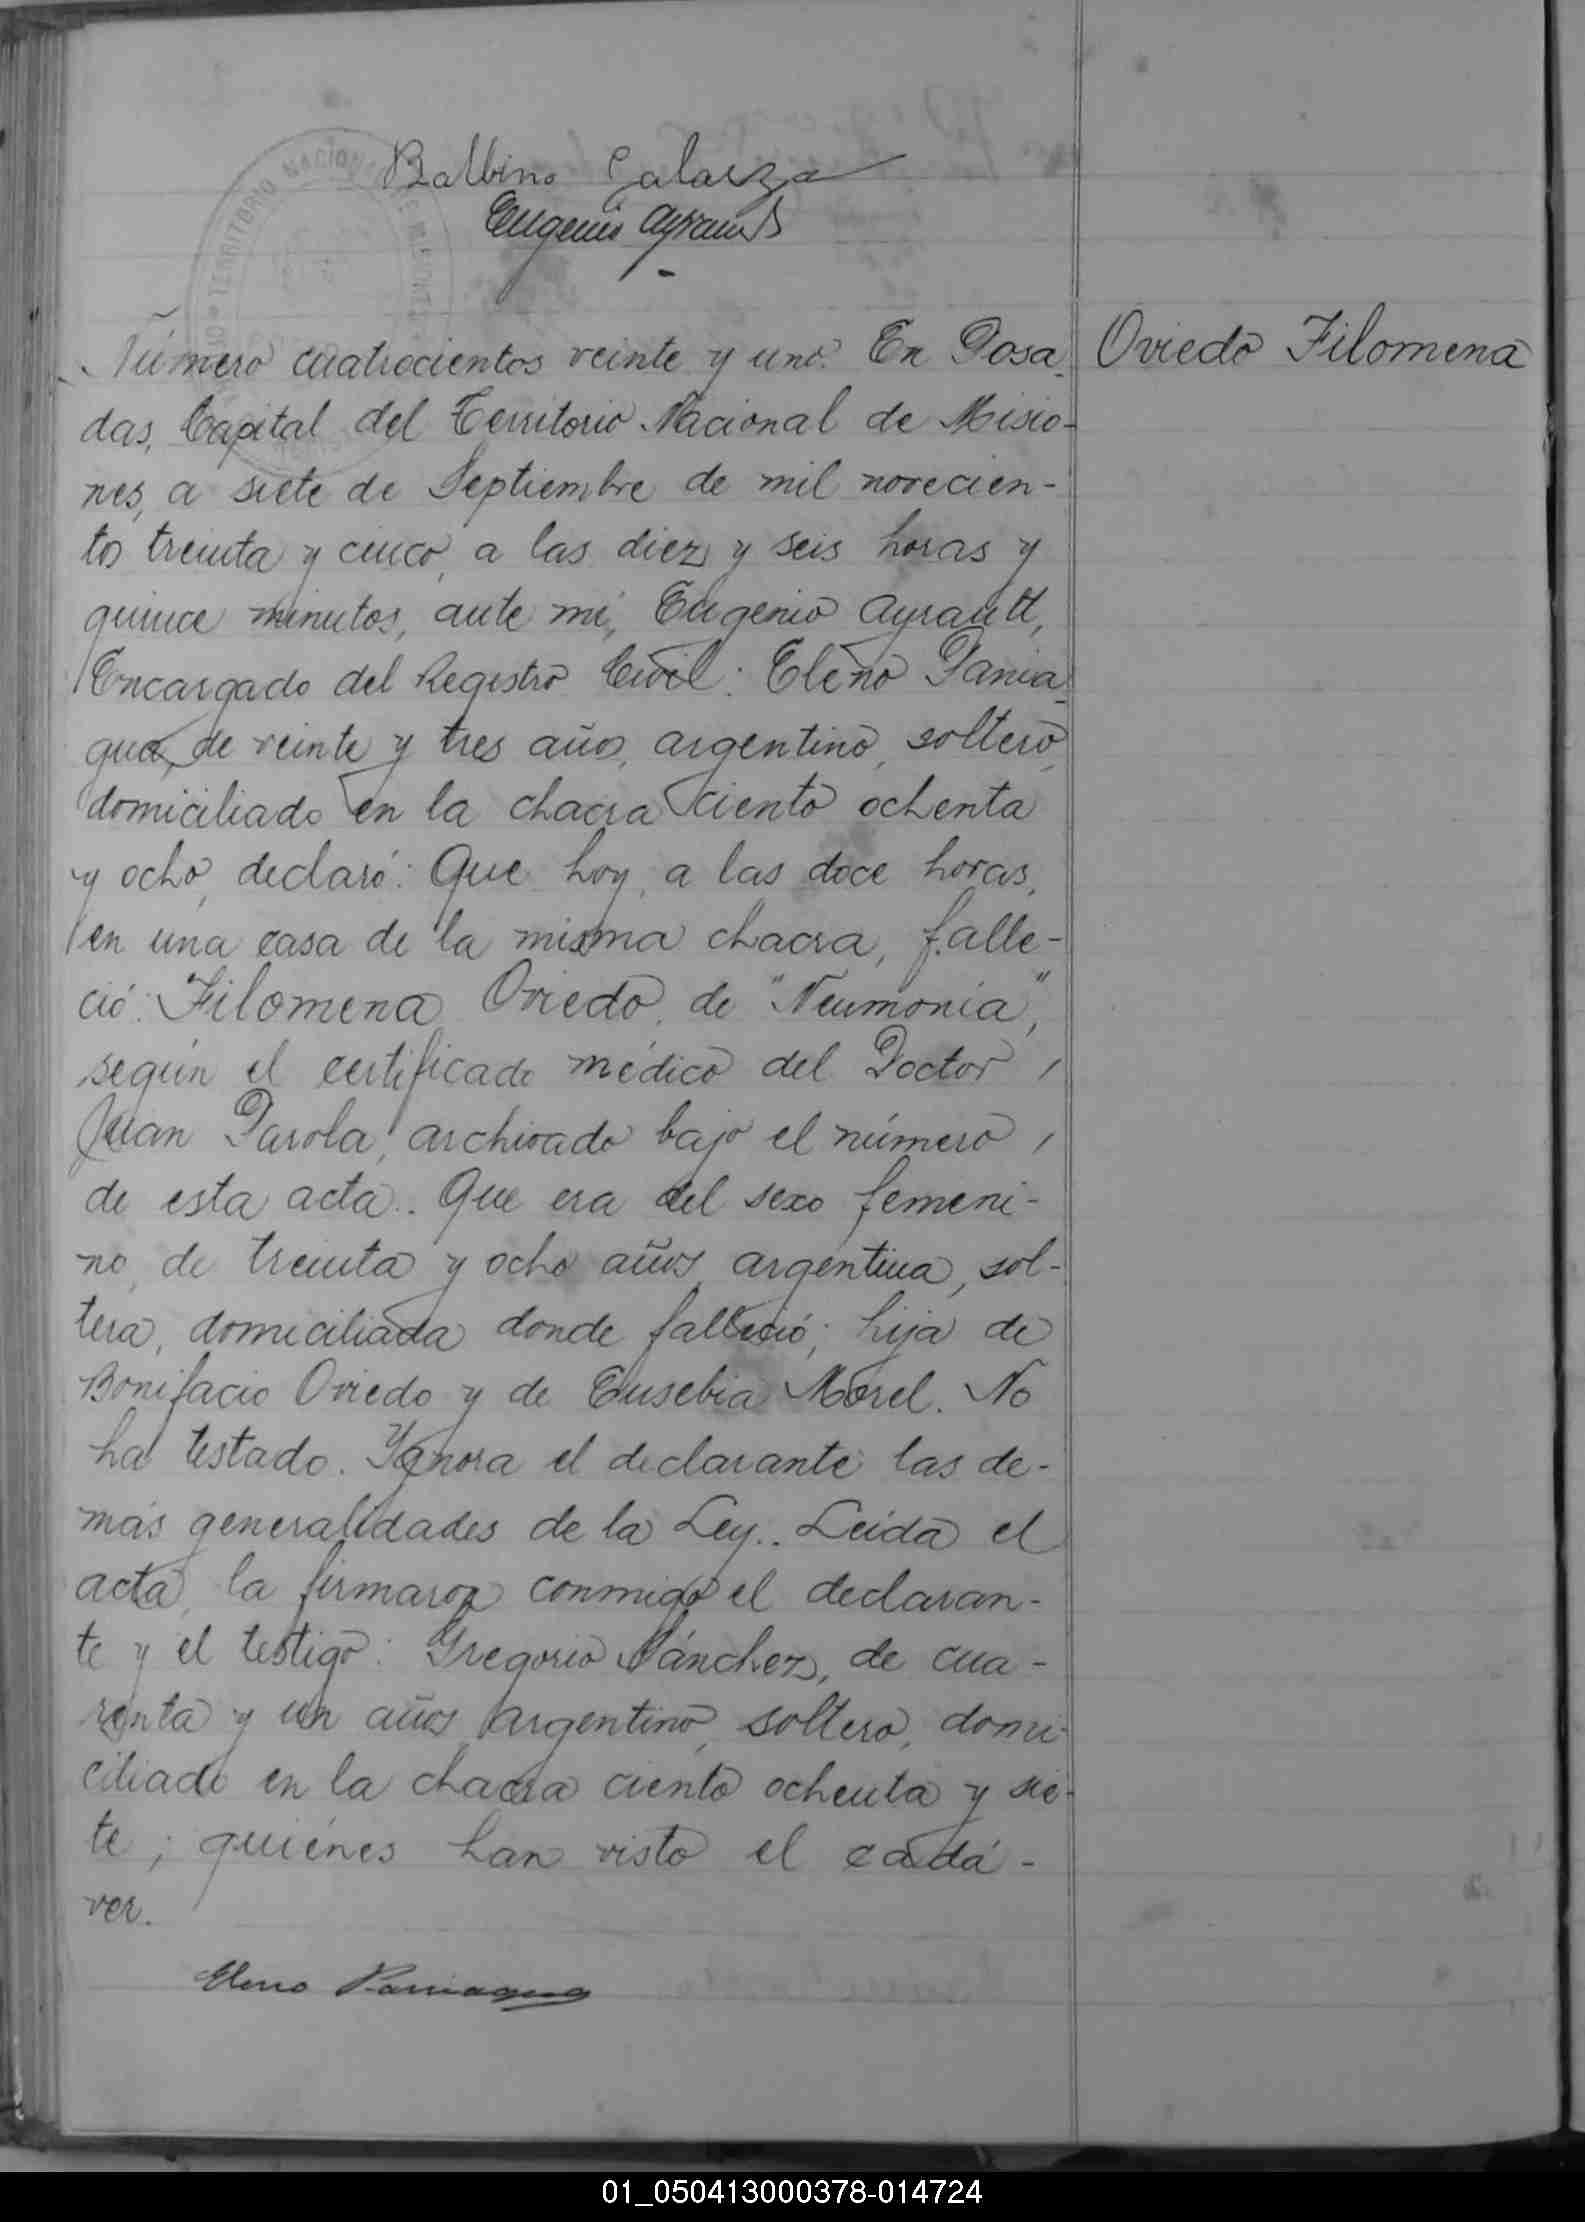 Balbino Galarza
Eugenio Ayrault
TERRITORIO NACIONAL DE MISIONES
Número cuatrocientos veinte y uno. En Posa- Oviedo Filomena
das, Capital del Territorio Nacional de Misio-
nes, a siete de Septiembre de mil novecien-
tos treinta y cinco, a las diez y seis horas y
quince minutos, ante mí, Eugenio Ayrault,
Encargado del Registro Civil: Eleno Pania-
gua, de veinte y tres años, argentino, soltero,
domiciliado en la chacra ciento ochenta
y ocho, declaró: Que hoy, a las doce horas,
en una casa de la misma chacra, falle-
ció: Filomena Oviedo, de "Neumonía",
según el certificado médico del Doctor
Juan Parola, archivado bajo el número
de esta acta.. Que era del sexo femeni-
no, de treinta y ocho años, argentina, sol-
tera, domiciliada donde falleció; hija de
Bonifacio Oviedo y de Eusebia Morel. No
ha testado. Ygnora el declarante las de-
más generalidades de la Ley.. Leída el
acta, la firmaron conmigo el declaran-
te y el testigo: Gregorio Sánchez, de cua-
renta y un años, argentino, soltero, domi-
ciliado en la chacra ciento ochenta y sie-
te; quiénes han visto el cadá-
ver.
Eleno Paniagua
01_050413000378-014724